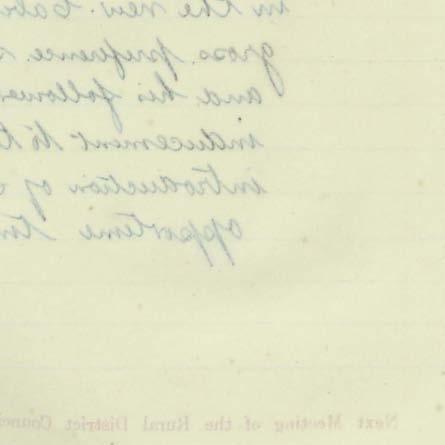 in the new Labo
gross preference
and his follower
inducement to
introduction of
opportune
Next Meeting of the Rural District Counci